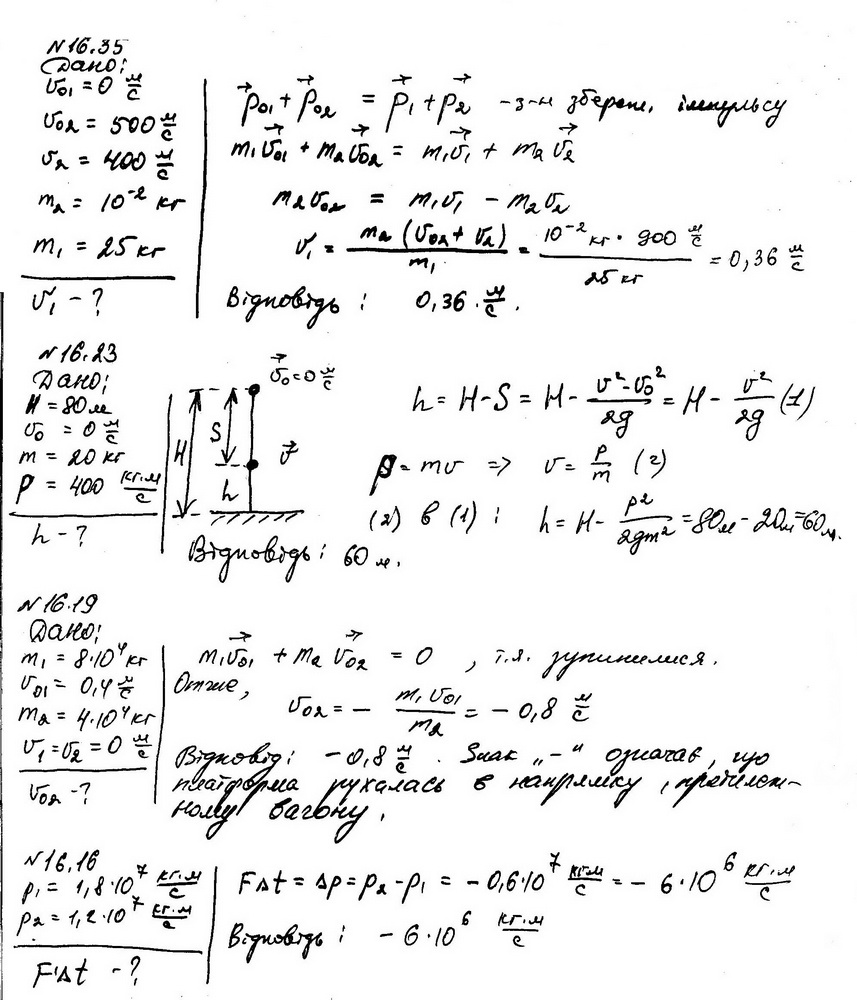 №16.35
Дано:
v₀₁ = 0 м/с
v₀₂ = 500 м/с
v₂ = 400 м/с
m₂ = 10⁻² кг
m₁ = 25 кг
v₁ - ?
p⃗₀₁ + p⃗₀₂ = p⃗₁ + p⃗₂ - з-н збереж. імпульсу
m₁v⃗₀₁ + m₂v⃗₀₂ = m₁v⃗₁ + m₂v⃗₂
m₂v₀₂ = m₁v₁ - m₂v₂
v₁ = m₂(v₀₂ + v₂)/m₁ = 10⁻² кг · 900 м/с / 25 кг = 0,36 м/с
Відповідь: 0,36 · м/с.
№16.23
Дано:
H = 80 м
v₀ = 0 м/с
m = 20 кг
p = 400 кг·м/с
h - ?
v⃗₀ = 0 м/с
H
S
v⃗
h
h = H - S = H - (v² - v₀²)/2g = H - v²/2g (1)
p = mv => v = p/m (2)
(2) в (1): h = H - p²/2gm² = 80м - 20м = 60м.
Відповідь: 60 м.
№16.19
Дано:
m₁ = 8·10⁴ кг
v₀₁ = 0,4 м/с
m₂ = 4·10⁴ кг
v₁ = v₂ = 0 м/с
v₀₂ - ?
m₁v⃗₀₁ + m₂v⃗₀₂ = 0, т.я. зупинилися.
Отже,
v₀₂ = - m₁v₀₁/m₂ = - 0,8 м/с
Відповід: -0,8 м/с. Знак „-“ означає, що
платформа рухалась в напрямку, протилеж-
ному вагону.
№16.16
p₁ = 1,8·10⁷ кг·м/с
p₂ = 1,2·10⁷ кг·м/с
FΔt - ?
FΔt = Δp = p₂ - p₁ = - 0,6·10⁷ кг·м/с = - 6·10⁶ кг·м/с
Відповідь: - 6·10⁶ кг·м/с